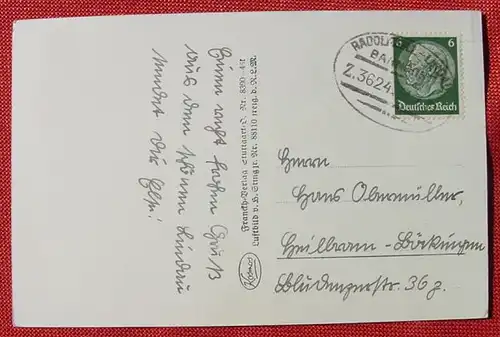 Einen recht frohen Gruß
aus dem schönen Lindau
sendet Dir Elsi!
Franckh-Verlag Stuttgart-O. Nr. 8390
Luftbild v. R. Strug Nr. 88110 freig. d. R.L.M.
Kosmos
RADOLFZELL
BAHNPOST
Z.3624
6 6
Deutsches Reich
Herrn
Hans Obermüller,
Heilbronn-Böckingen
Bludenzerstr. 36 z.